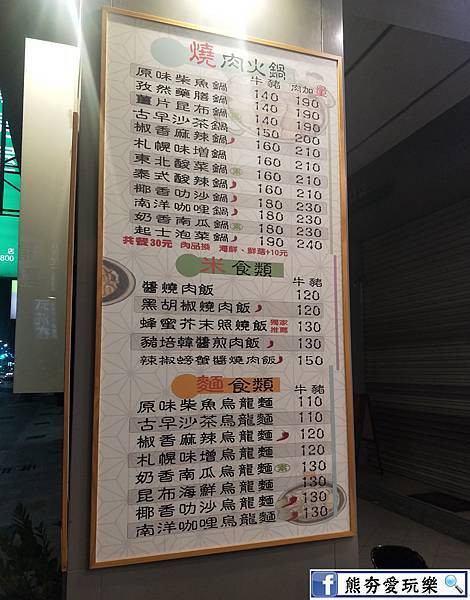 燒肉火鍋
牛豬 肉加量
原味柴魚鍋 140 190
孜然藥膳鍋 140 190
薑片昆布鍋 140 190
古早沙茶鍋 140 190
椒香麻辣鍋 150 200
札幌味增鍋 160 210
東北酸菜鍋 160 210
泰式酸辣鍋 160 210
椰香叻沙鍋 180 230
南洋咖哩鍋 180 230
奶香南瓜鍋 素 180 230
起士泡菜鍋 190 240
共餐30元 肉品換 海鮮、鮮菇+10元
米食類 牛豬
醬燒肉飯 120
黑胡椒燒肉飯 120
蜂蜜芥末照燒飯 獨家推薦 130
豬培韓醬煎肉飯 130
辣椒螃蟹醬燒肉飯 150
麵食類 牛豬
原味柴魚烏龍麵 110
古早沙茶烏龍麵 110
椒香麻辣烏龍麵 120
札幌味增烏龍麵 120
奶香南瓜烏龍麵 素 130
昆布海鮮烏龍麵 130
椰香叻沙烏龍麵 130
南洋咖哩烏龍麵 130
店
800
熊夯愛玩樂